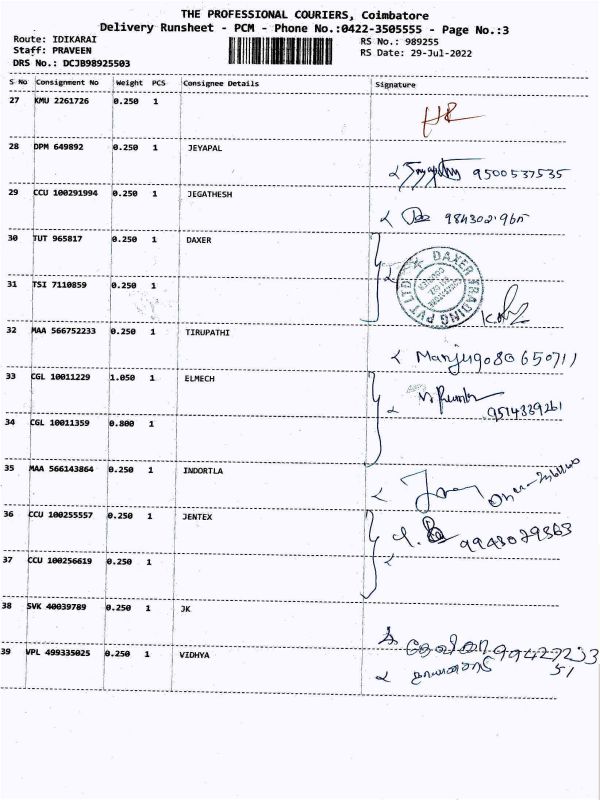 THE PROFESSIONAL COURIERS, Coimbatore
Delivery Runsheet - PCM - Phone No.:0422-3505555 - Page No.:3
Route: IDIKARAI RS No.: 989255
Staff: PRAVEEN RS Date: 29-Jul-2022
DRS No.: DCJB98925503
S No Consignment No Weight PCS Consignee Details Signature
27 KMU 2261726 0.250 1
28 DPM 649892 0.250 1 JEYAPAL
9500537535
29 CCU 100291994 0.250 1 JEGATHESH
30 TUT 965817 0.250 1 DAXER
DAXER TRADING PVT LTD
31 TSI 7110859 0.250 1
32 MAA 566752233 0.250 1 TIRUPATHI
Manju 9080650711
33 CGL 10011229 1.050 1 ELMECH
9514339261
34 CGL 10011359 0.800 1
35 MAA 566143864 0.250 1 INDORTLA
36 CCU 100255557 0.250 1 JENTEX
9943029363
37 CCU 100256619 0.250 1
38 SVK 40039789 0.250 1 JK
39 VPL 499335025 0.250 1 VIDHYA